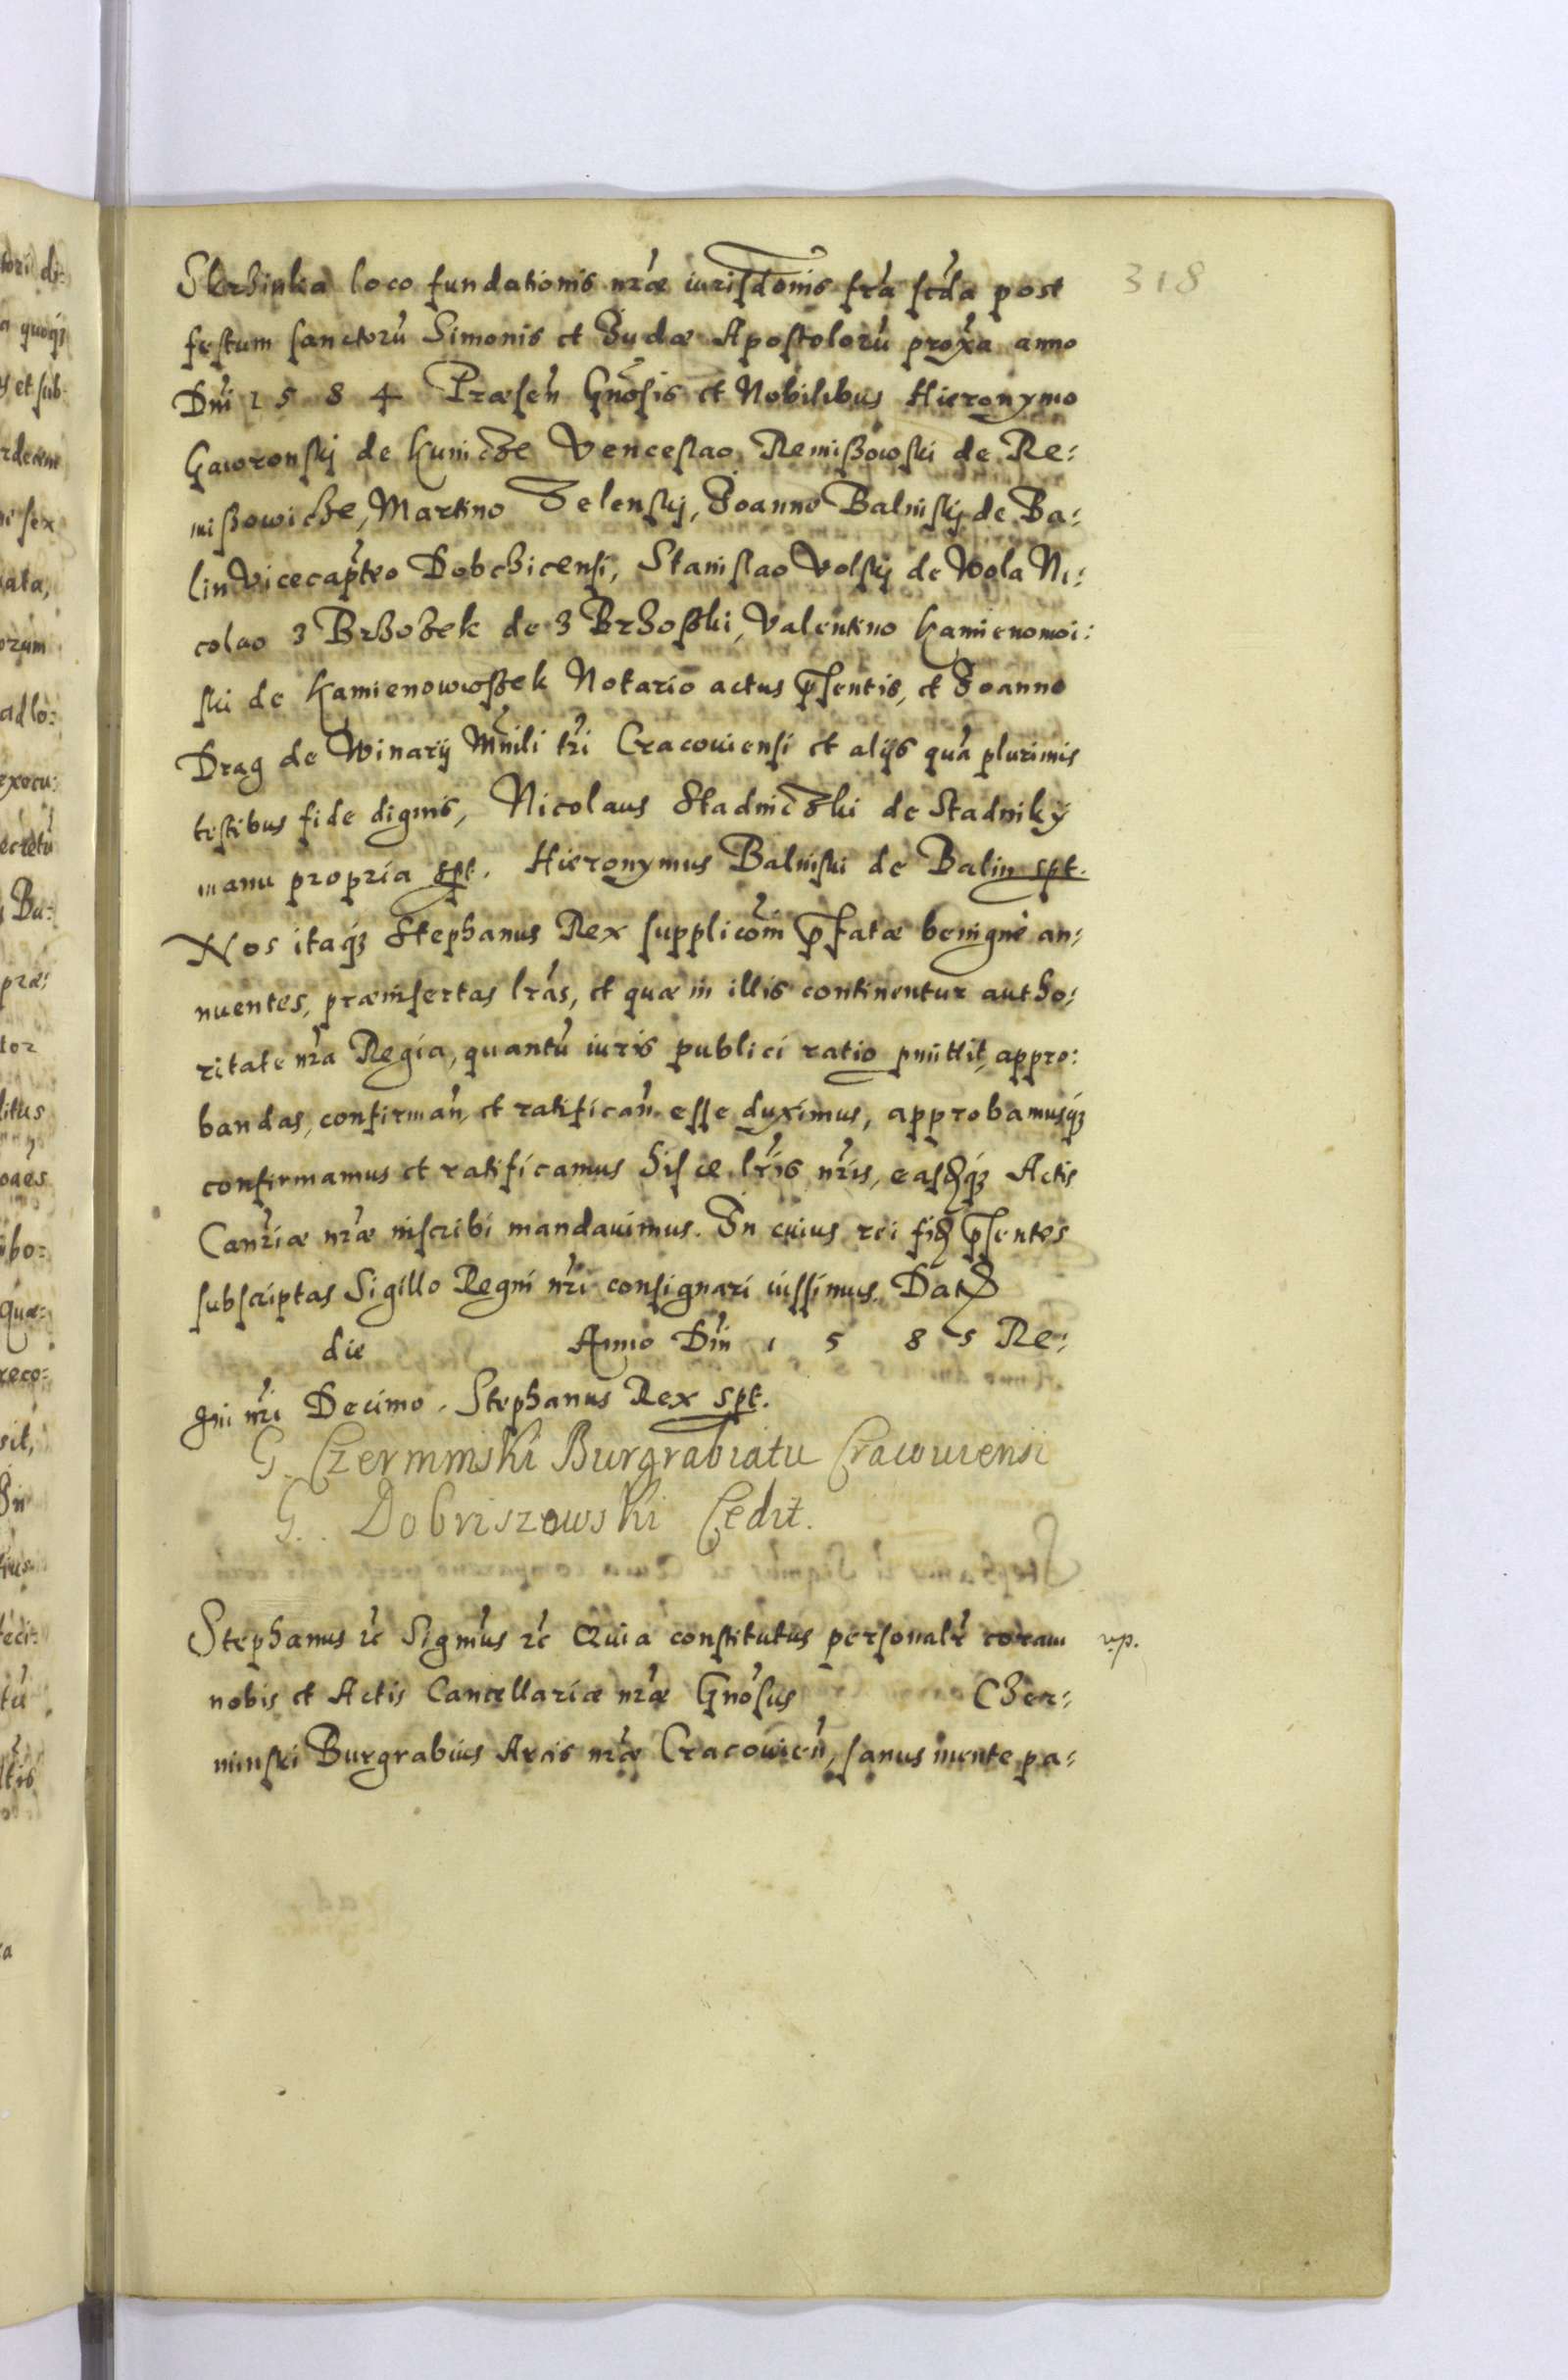 318
Skrzinka loco fundationis nr̃æ iurisdõnis fr̃a scd̃a post
festum sanctorũ Simonis et Judæ Apostolorũ proxĩa anno
Dñi 1584 Præseñ Gñosis et Nobilibus Hieronymo
Gaworonskj de Kunicze Venceslao Remiszowski de Re:
miszowicze, Martino Zelenskj, Joanne Balinskij de Ba:
lin Vicecap̃teo Dobchicensi, Stanislao Volskij de Wola Ni:
colao z Brzozek de z Brzoski, Valentino Kamienowoi:
ski de Kamienowoszek Notario actus p̃sentis, et Joanne
Drag de Winarij Mñili tr̃i Cracoviensi et alijs quã plurimis
testibus fide dignis, Nicolaus Stadniczki de Stadnikÿ
manu propria spt. Hieronymus Balinski de Balin spt.
Nos itaq₃ Stephanus Rex supplicõni p̃fatæ benigne an:
nuentes, præinsertas lr̃as, et quæ in illis continentur autho:
ritate nr̃a Regia, quantũ iuris publici ratio p̱mittit, appro:
bandas, confirmañ, et ratificañ esse duximus, approbamusq₃
confirmamus et ratificamus hisce lr̃is nr̃is, easdq₃ Actis
Canr̃iæ nr̃æ inscribi mandavimus. In cuius rei fid p̃sentes
subscriptas Sigillo Regni nr̃i consignari iussimus. Dat
die Anno Dñi 1585 Re:
gni nr̃i Decimo. Stephanus Rex spt.
G. Czerminski Burgrabiatu Cracoviensi
G. Dobriszowski Cedit.
Stephanus ꝛc Sigm̃us ꝛc Quia constitutus personalr̃ coram
nobis et Actis Cancellariæ nr̃æ Gñosus Czer:
minski Burgrabius Arcis nr̃æ Cracovieñ, sanus mente pa: